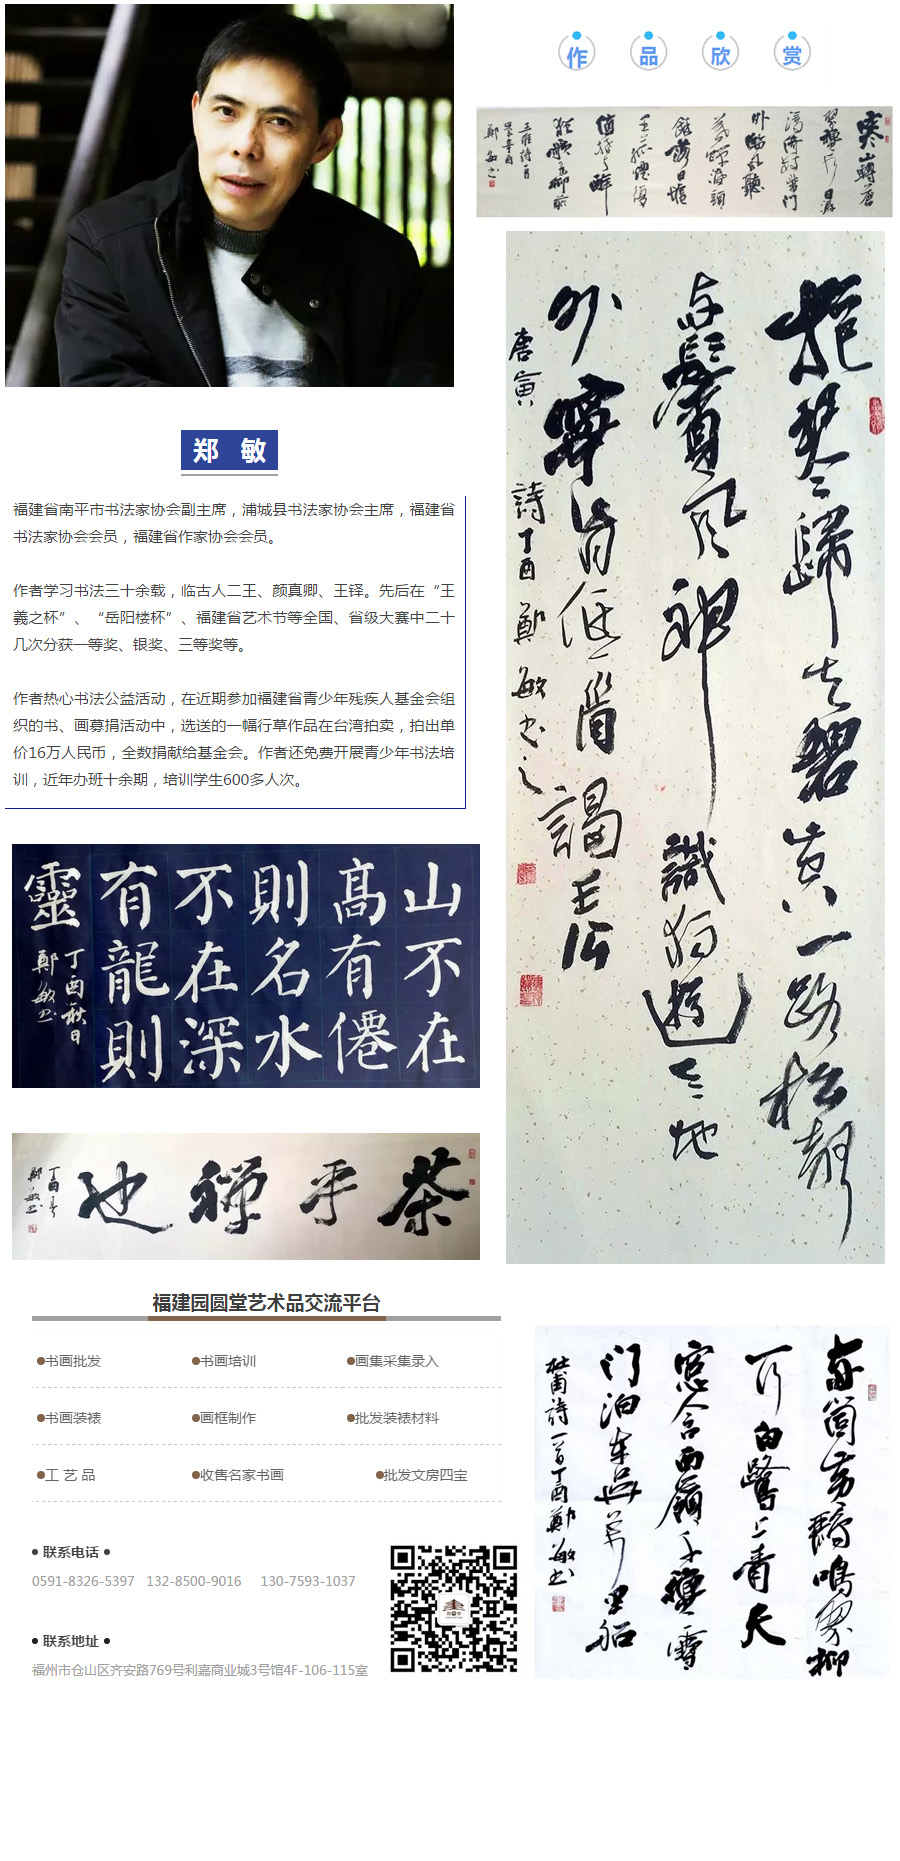 郑 敏
福建省南平市书法家协会副主席，浦城县书法家协会主席，福建省
书法家协会会员，福建省作家协会会员。
作者学习书法三十余载，临古人二王、颜真卿、王铎。先后在“王
羲之杯”、“岳阳楼杯”、福建省艺术节等全国、省级大赛中二十
几次分获一等奖、银奖、三等奖等。
作者热心书法公益活动，在近期参加福建省青少年残疾人基金会组
织的书、画募捐活动中，选送的一幅行草作品在台湾拍卖，拍出单
价16万人民币，全数捐献给基金会。作者还免费开展青少年书法培
训，近年办班十余期，培训学生600多人次。
山不在
高有僊
則名水
不在深
有龍則
靈
丁酉秋日
鄭敏书
茶乎禅也
丁酉春
鄭敏书
作品欣赏
寒山轉蒼
外臨风聽
值接輿醉
王維詩一首
抱琴歸去碧山空一路松聲
两鬢風神識獨遊天地
外寧肯低眉謁王公
唐寅詩丁酉鄭敏书之
两箇黄鸝鳴翠柳
一行白鷺上青天
窓含西嶺千秋雪
门泊東吳萬里船
杜甫詩一首丁酉鄭敏书
福建园圆堂艺术品交流平台
●书画批发 ●书画培训 ●画集采集录入
●书画装裱 ●画框制作 ●批发装裱材料
●工 艺 品 ●收售名家书画 ●批发文房四宝
● 联系电话 ●
0591-8326-5397 132-8500-9016 130-7593-1037
● 联系地址 ●
福州市仓山区齐安路769号利嘉商业城3号馆4F-106-115室